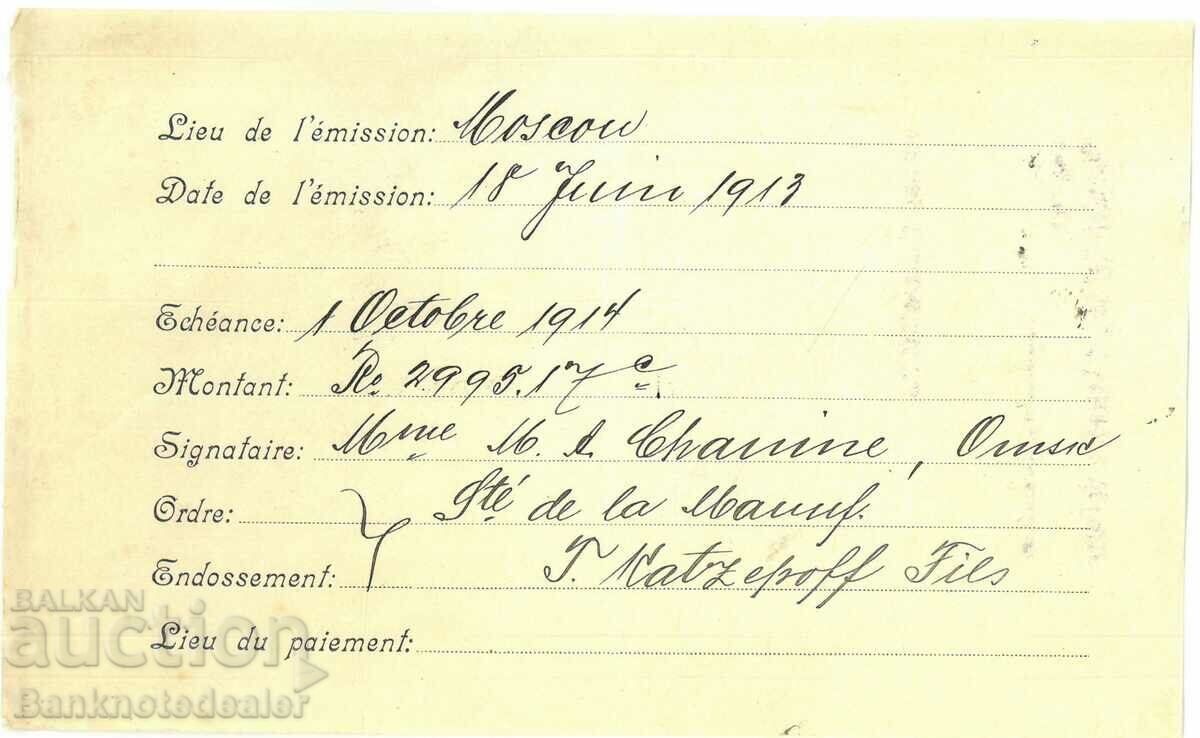 Lieu de l'émission: Moscou
Date de l'émission: 18 Juin 1913
Echéance: 1 Octobre 1914
Montant: Ro. 2995.17 c
Signataire: Mme M. A. Chanine, Omsk
Ordre: Sté de la Manuf.
Endossement: T. Katzepoff Fils
Lieu du paiement:
BALKAN
auction
Banknotedealer